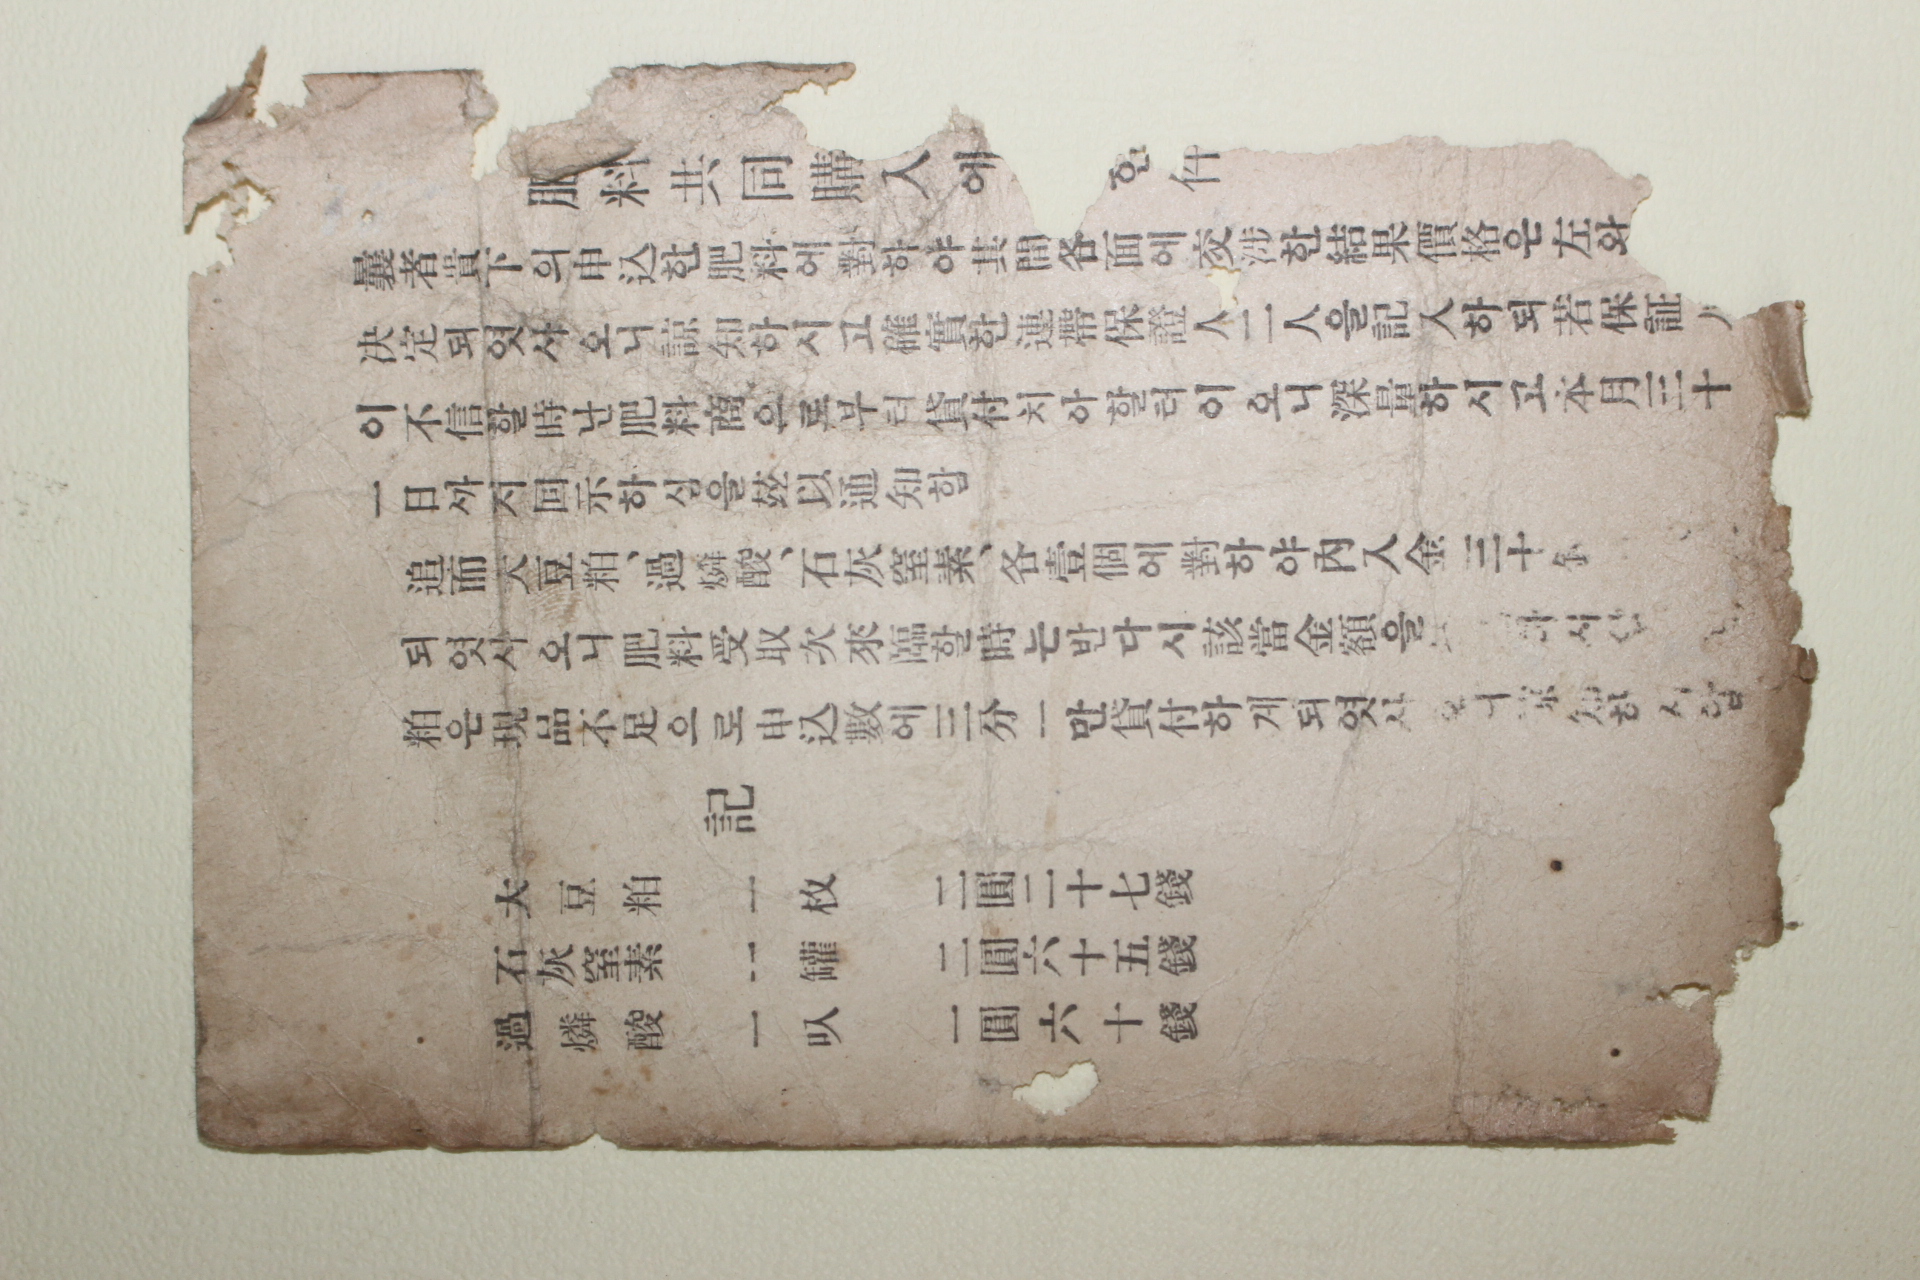 肥料共同購入에 한件
曩者貴下의申込한肥料에對하야其間各面에交涉한結果價格은左와
決定되엿사오니諒知하시고確實한連帶保證人二人을記入하되若保証人
이不信할時난肥料商으로부터貸付치아할터이오니深量하시고本月三十
一日싸지回示하심을玆以通知함
追而大豆粕、過燐酸、石灰窒素、各壹個에對하야內入金三十
되엿사오니肥料受取次來臨할時는반다시該當金額을
粕은現品不足으로申込數에三分一만貸付하게되엿사오니
記
大豆粕 一枚 二圓二十七錢
石灰窒素 一罐 二圓六十五錢
過燐酸 一叺 一圓六十錢